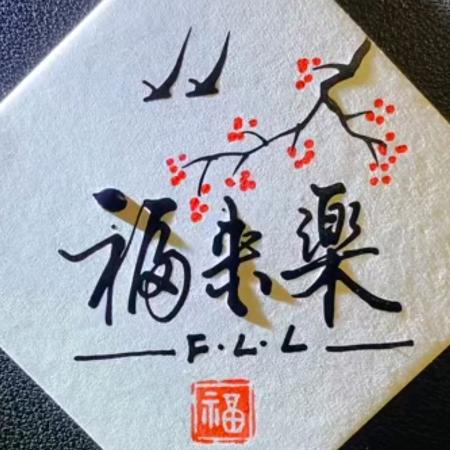 福来樂
F.L.L
福